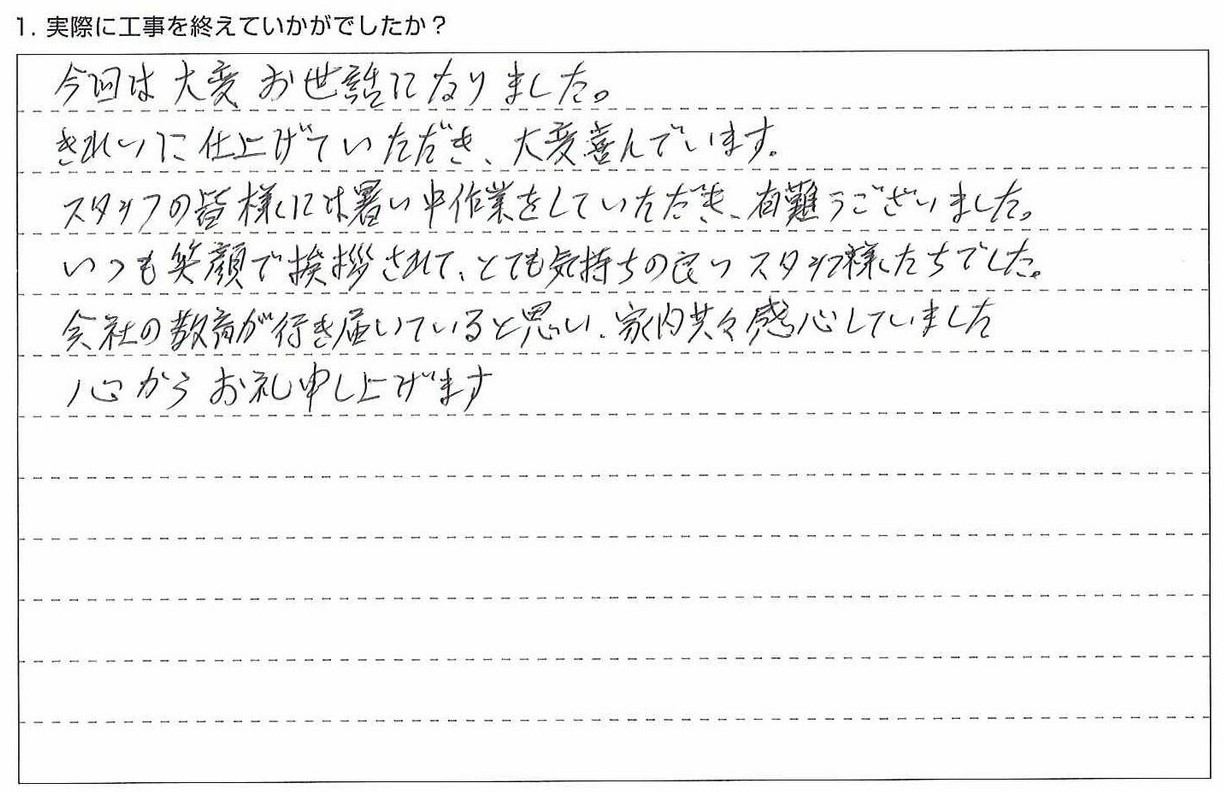 1. 実際に工事を終えていかがでしたか？
今回は大変お世話になりました。
きれいに仕上げていただき、大変喜んでいます。
スタッフの皆様には暑い中作業をしていただき、有難うございました。
いつも笑顔で挨拶されて、とても気持ちの良いスタッフ様たちでした。
会社の教育が行き届いていると思い、家内共々感心していました
心からお礼申し上げます